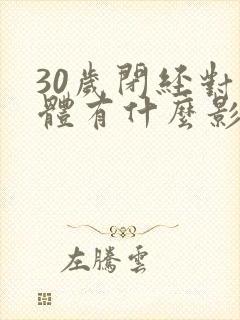 30歲閉經對
體有什麼影
左騰雲